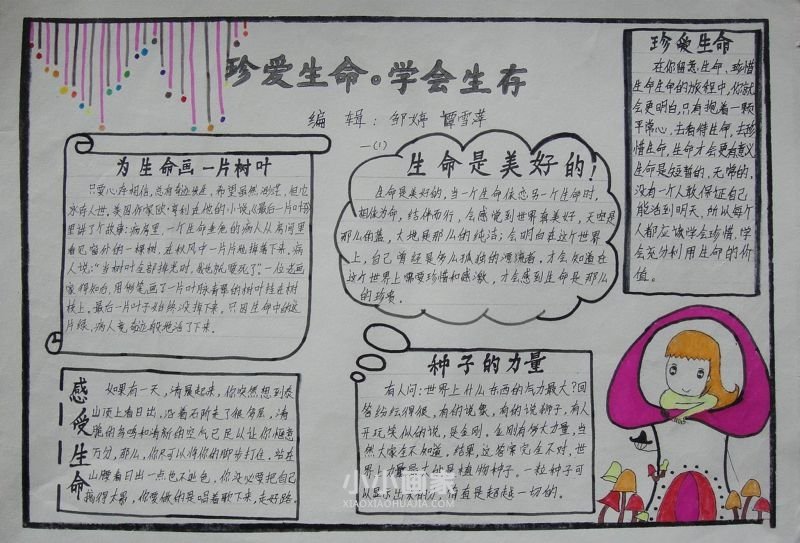 珍爱生命。学会生存
编 辑：邹婷 谭雪萍
一(1)
为生命画一片树叶
只要心存相信，总有奇迹发生，希望虽然渺茫，但它
永存人世。美国作家欧·亨利在他的小说《最后一片叶》
里讲了个故事：病房里，一个生命垂危的病人从房间里
看见窗外的一棵树，在秋风中一片片地掉落下来。病
人说："当树叶全部掉光时，我也就要死了。"一位老画
家得知后，用彩笔画了一片叶脉青翠的树叶挂在树
枝上。最后一片叶子始终没掉下来。只因生命中的这
片绿，病人竟奇迹般地活了下来。
生命是美好的！
生命是美好的，当一个生命依恋另一个生命时，
相依为命，结伴而行，会感觉到世界真美好，天空是
那么的蓝，大地是那么的纯洁；会明白在这个世界
上，自己曾经是多么孤独的漂流者，才会知道在
这个世界上需要珍惜和感激，才会感到生命是那么
的珍贵。
珍爱生命
在你留恋生命、珍惜
生命生命的旅程中，你就
会更明白，只有抱着一颗
平常心，去看待生命，去珍
惜生命，生命才会更有意义
生命是短暂的，无常的，
没有一个人敢保证自己
能活到明天，所以每个
人都应该学会珍惜，学
会充分利用生命的价
值。
感受生命
如果有一天，清晨起来，你突然想到衣
山顶上看日出，沿着石阶走了很多层，清
脆的鸟鸣和清新的空气已足以让你惬意
万分，那么，你尽可以将你的脚步打住，站在
山腰看日出一点也不逊色，你没必要把自己
搞得太累，你要做的是唱着歌下来，走好路。
种子的力量
有人问：世界上什么东西的气力最大？回
答纷纭得很，有的说象，有的说狮子，有人
开玩笑似的说，是金刚。金刚有多大力量，当
然大家全不知道。结果，这答案完全不对，世
界上力量最大的是植物种子。一粒种子可
以显示出来的力，简直是超越一切的。
小小画家
XIAOXIAOHUAJIA.COM